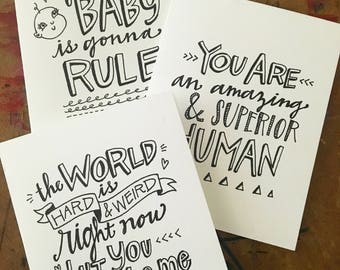 BABY
is gonna
RULE
YOU ARE
an amazing
& SUPERIOR
HUMAN
the WORLD
is
HARD & WEIRD
right now
BUT YOU
me